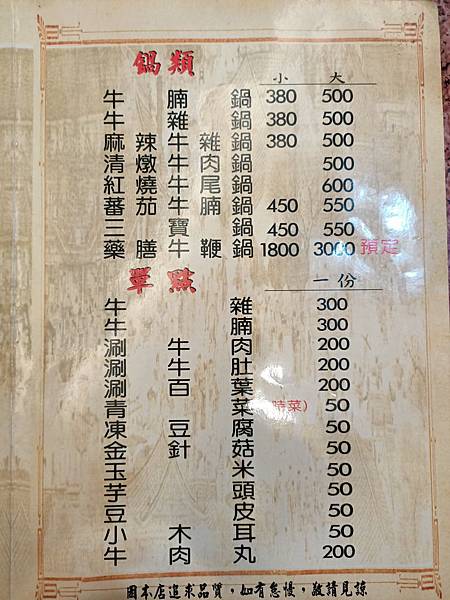 鍋類
小 大
牛腩鍋 380 500
牛雜鍋 380 500
麻辣牛雜鍋 380 500
清燉牛肉鍋 500
紅燒牛尾鍋 600
蕃茄牛腩鍋 450 550
三寶鍋 450 550
藥膳牛鞭鍋 1800 3000 預定
單點
一份
牛雜 300
牛腩 300
涮牛肉 200
涮牛肚 200
涮百葉 200
青菜(時菜) 50
凍豆腐 50
金針菇 50
玉米 50
芋頭 50
豆皮 50
小木耳 50
牛肉丸 200
因本店追求品質,如有怠慢,敬請見諒